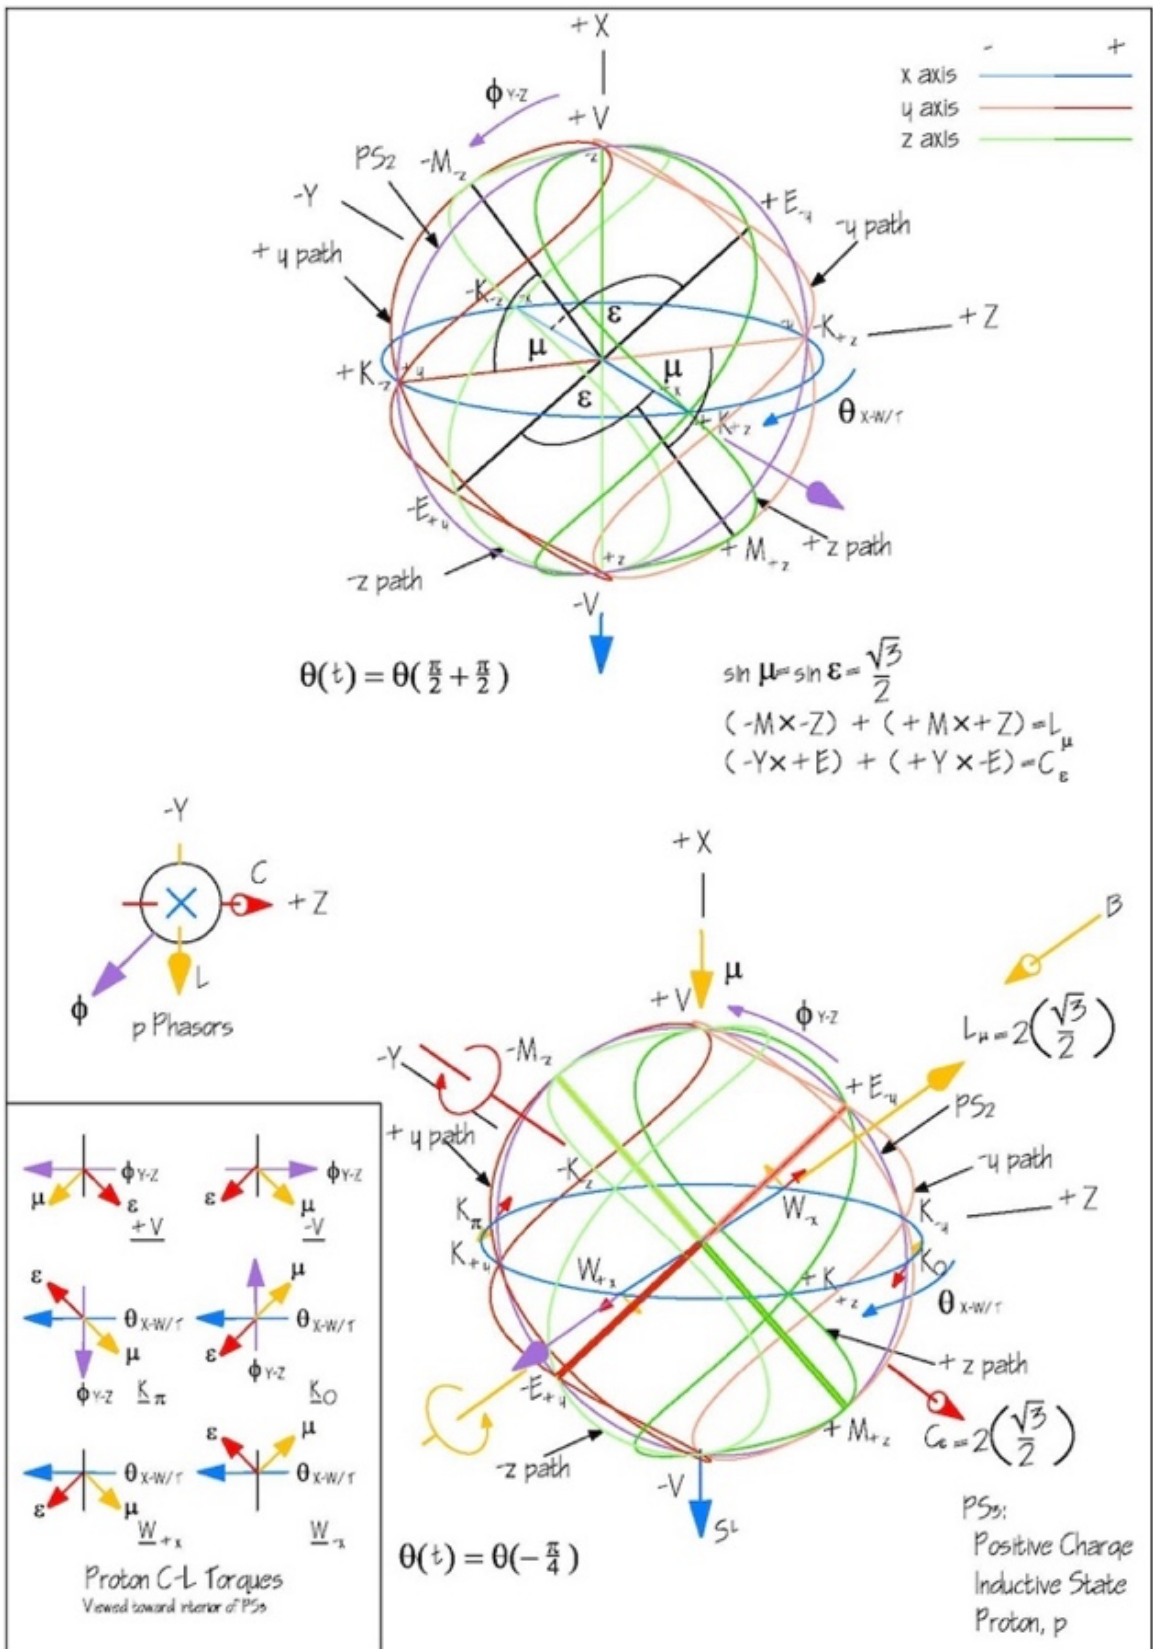 +X
- +
x axis
y axis
z axis
ϕ Y-Z
+V
-z
PS2
-M-z
-Y
+E-y
-y path
+y path
-K-z
-x
ε
-y
-K+z
+Z
μ
μ
+K-z
+y
ε
+x
+K+z
θ X-W/T
-E+y
+z
+M+z
+z path
-z path
-V
θ(t) = θ(π/2 + π/2)
sin μ = sin ε = √3/2
(-M×-Z) + (+M×+Z) = Lμ
(-Y×+E) + (+Y×-E) = Cε
-Y
C
+Z
L
ϕ
p Phasors
+X
B
μ
+V
ϕ Y-Z
Lμ = 2(√3/2)
-Y
-M-z
+E-y
PS2
+y path
-y path
-K-z
Kπ
W-x
K-y
+Z
K+y
K0
W+x
+K+z
θ X-W/T
+z path
-E+y
+M+z
Cε = 2(√3/2)
-z path
-V
SL
θ(t) = θ(-π/4)
PS3:
Positive Charge
Inductive State
Proton, p
ϕ Y-Z
μ
ε
+V
ϕ Y-Z
ε
μ
-V
ε
θ X-W/T
μ
ϕ Y-Z
Kπ
μ
θ X-W/T
ε
ϕ Y-Z
K0
θ X-W/T
ε
μ
W+x
ε
μ
θ X-W/T
W-x
Proton C-L Torques
Viewed toward interior of PS3